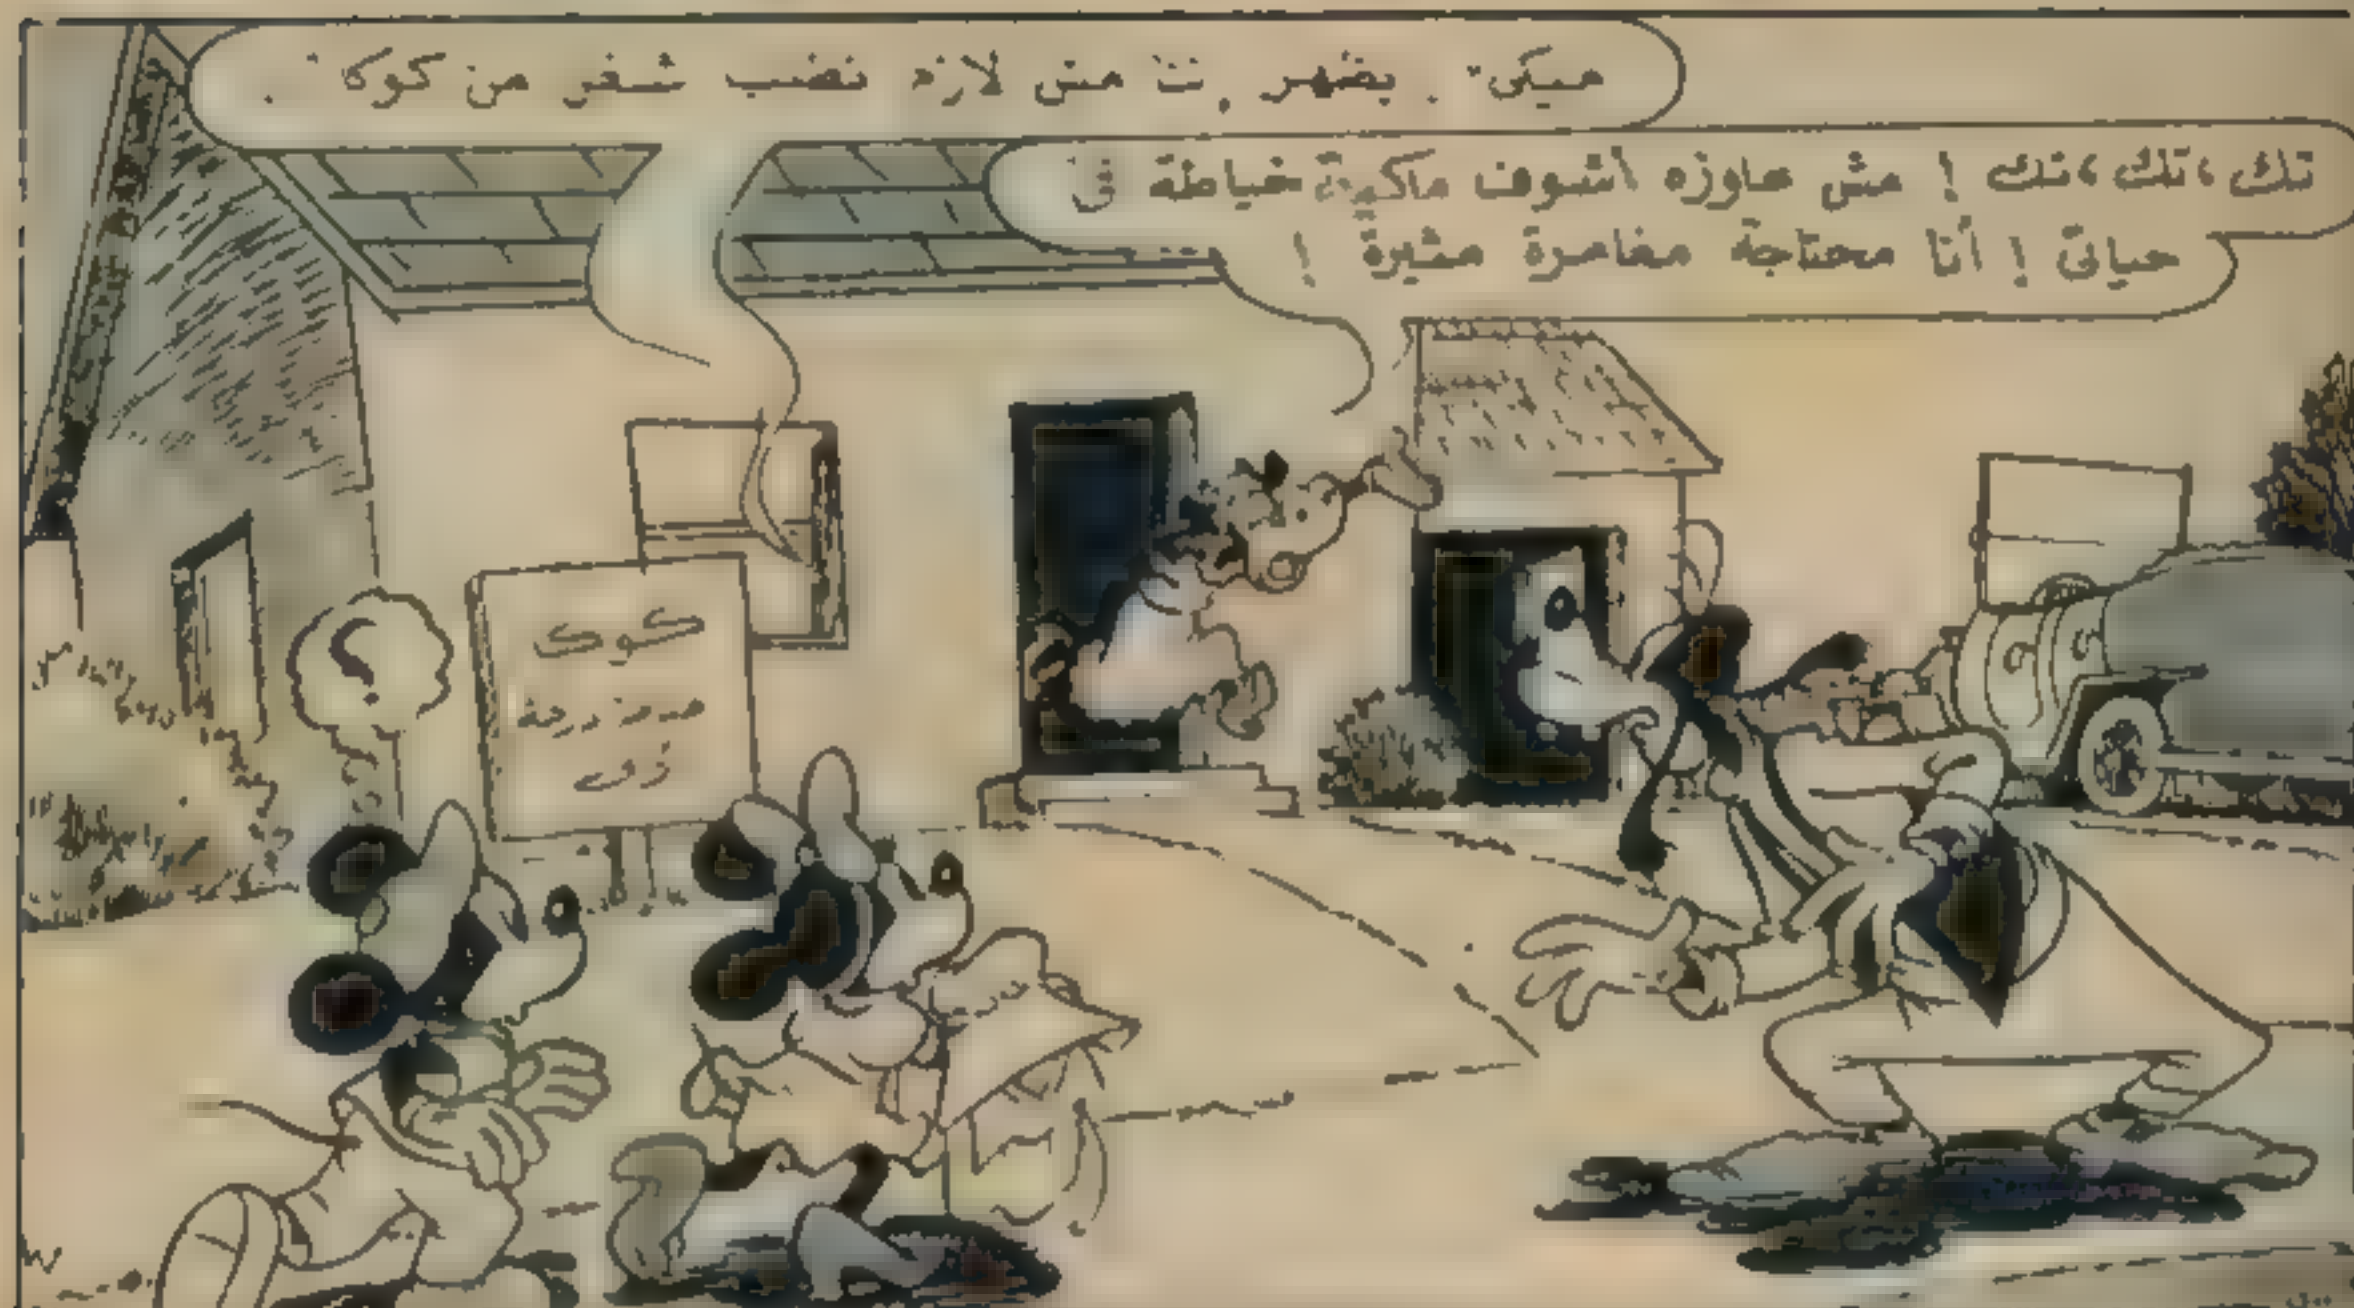 ميكى يظهر مش لازم نطلب شغل من كوك
تك ، تك ، تك ! مش عاوزه أشوف ماكينة خياطة فى
حياتى ! أنا محتاجة مغامرة مثيرة !
كوك